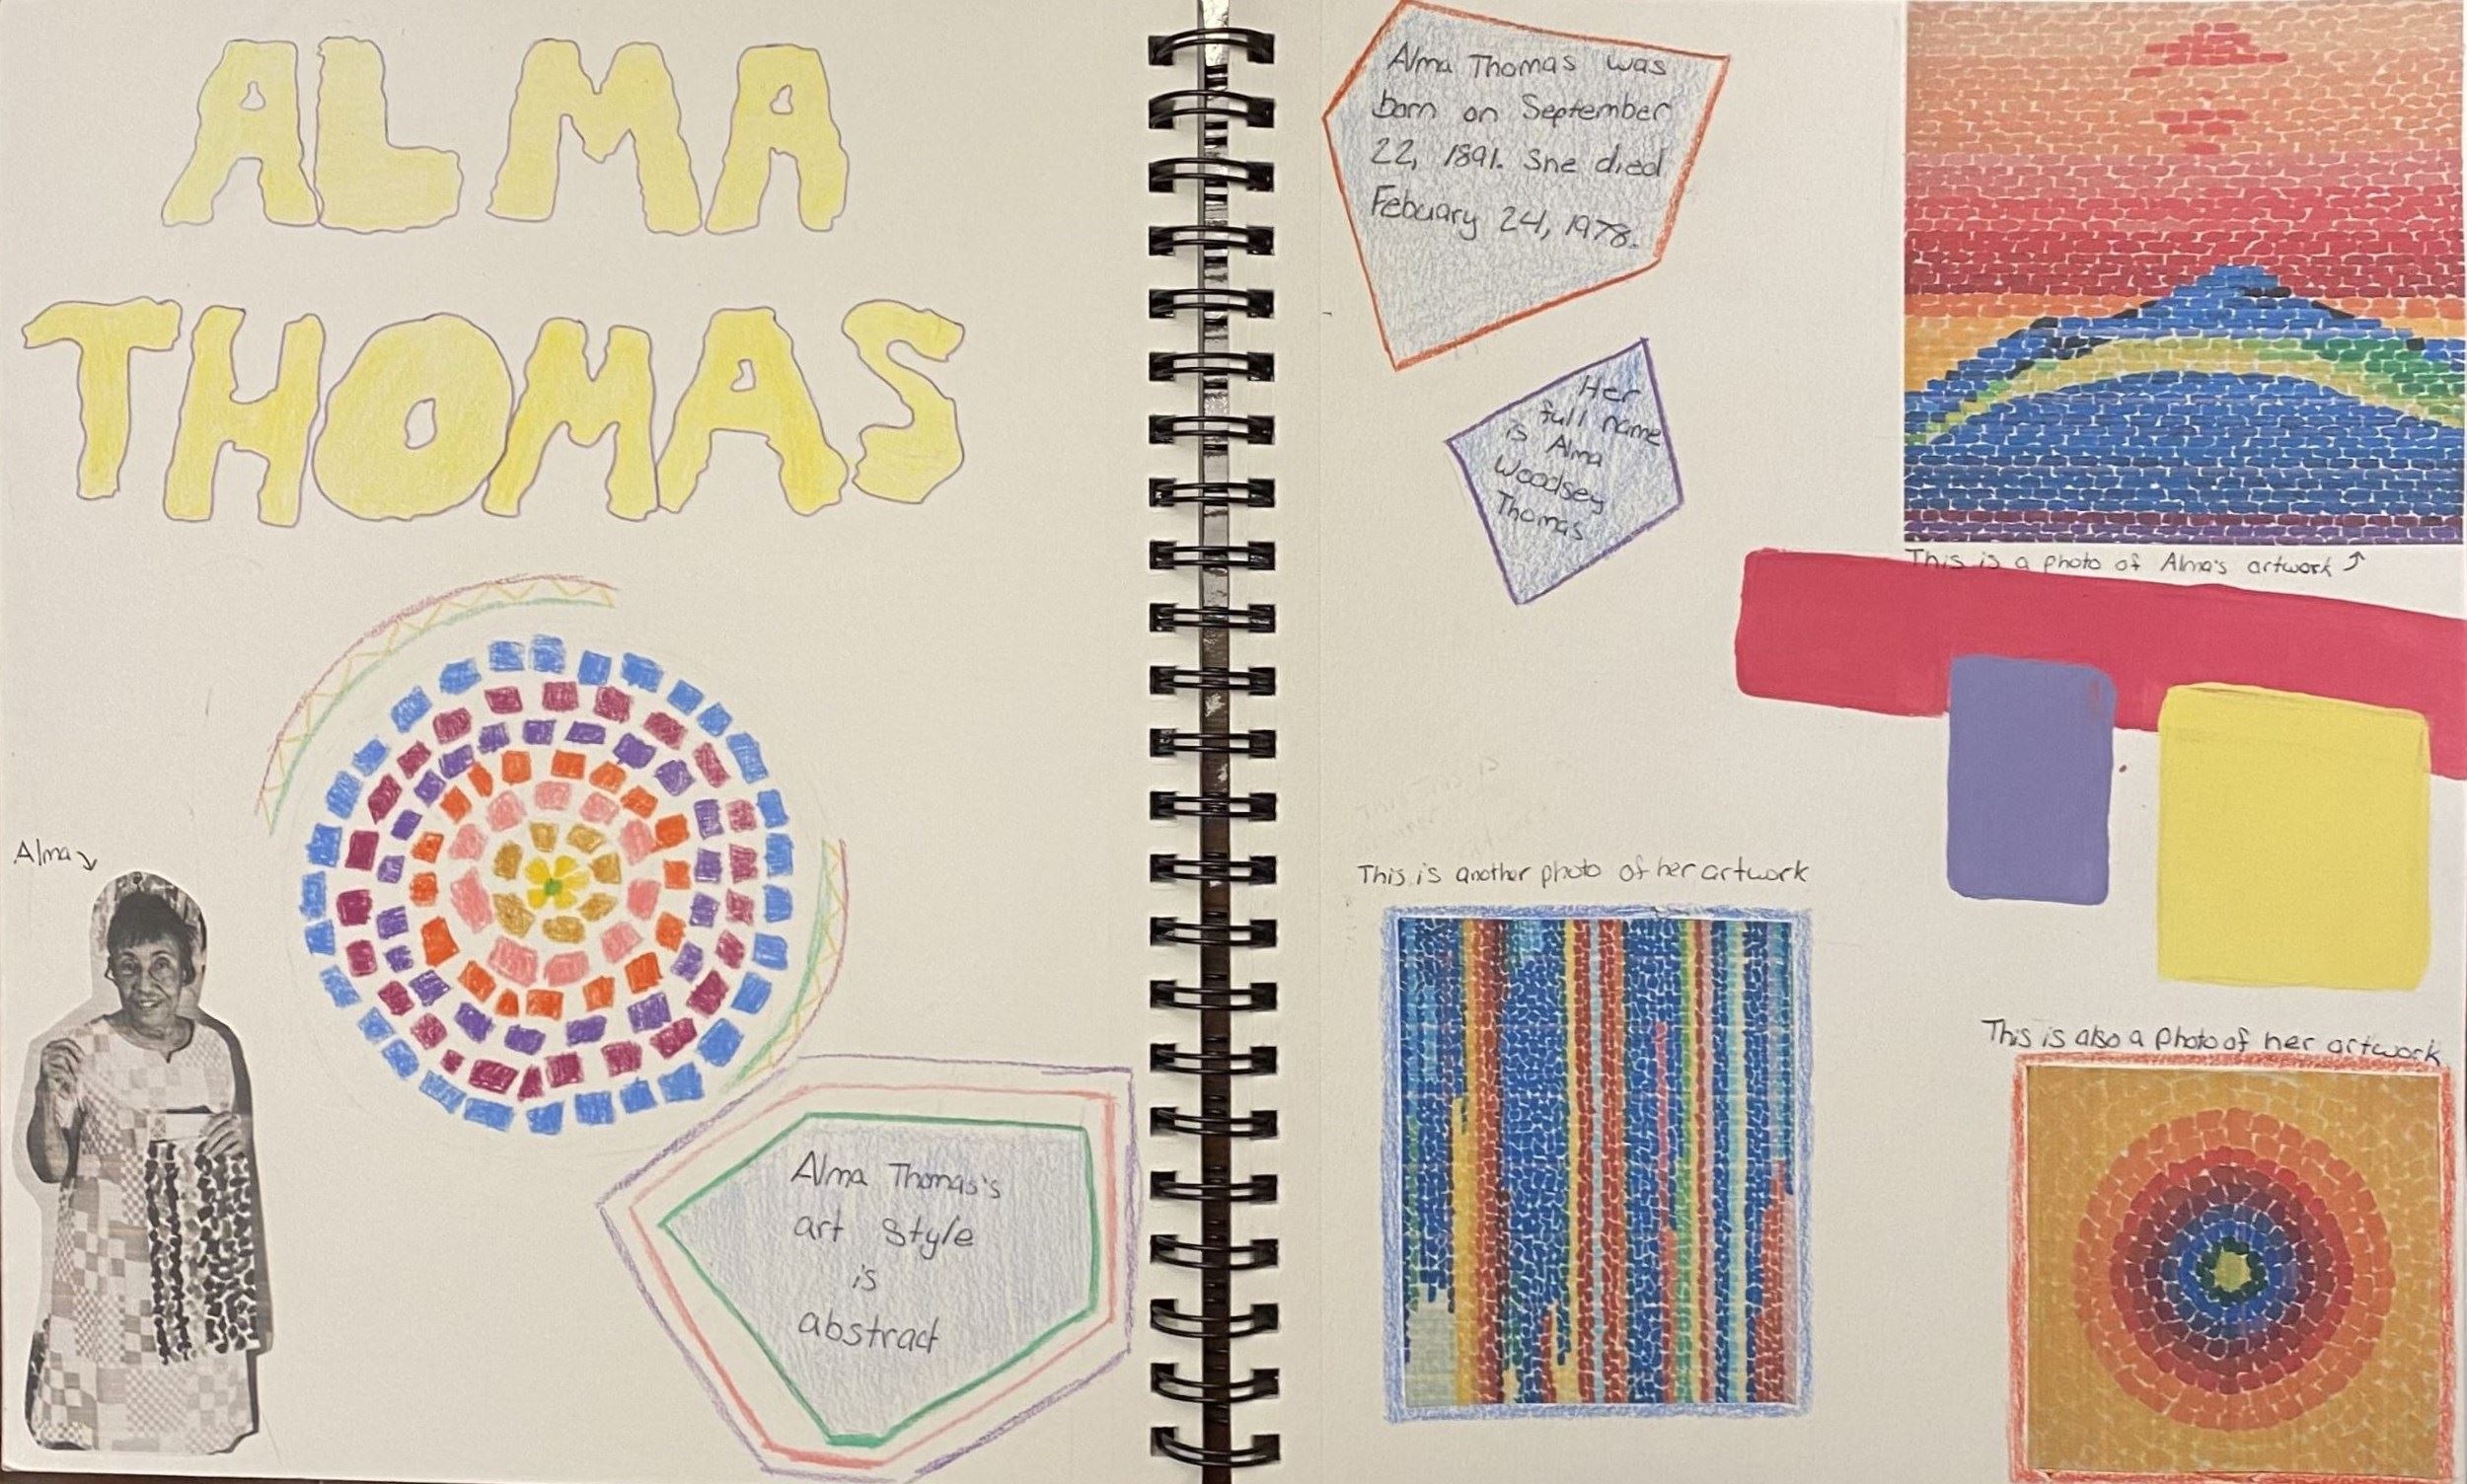 ALMA
THOMAS
Alma
Alma Thomas's
art style
is
abstract
Alma Thomas was
born on September
22, 1891. She died
Febuary 24, 1978.
Her
full name
is Alma
Woodsey
Thomas
This is a photo of Alma's artwork
This is another photo of her artwork
This is also a photo of her artwork